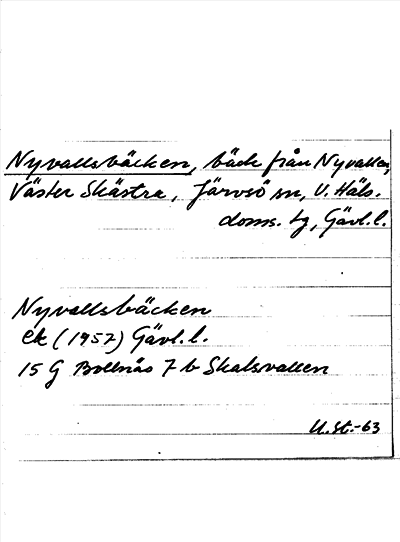 Nyvallsbäcken, bäck från Nyvallen,
Väster Skästra, Järvsö sn, V. Häls.
doms. tg, Gävl.l.
Nyvallsbäcken
ek (1957) Gävl.l.
15 G Bollnäs 7 b Skalsvallen
U.St.-63